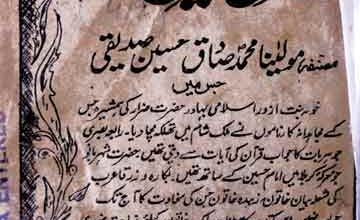 مصنفہ مولٰینا محمد صادق حسین صدیقی
جس میں
خولہ بنت ازور اسلامی بہادر حضرت ضرار کی ہمشیر جس
کے مجاہدانہ کارناموں نے ملک شام میں تہلکہ مچا دیا۔ رابعہ بصری
جو ہر بات کا جواب قرآن کی آیات سے دیتی تھیں حضرت شہر بانو
جو معرکہ کربلا میں امام حسین کے ساتھ تھیں
خاتون زبیدہ خاتون جن کی سخاوت کا آج تک
ENTERED